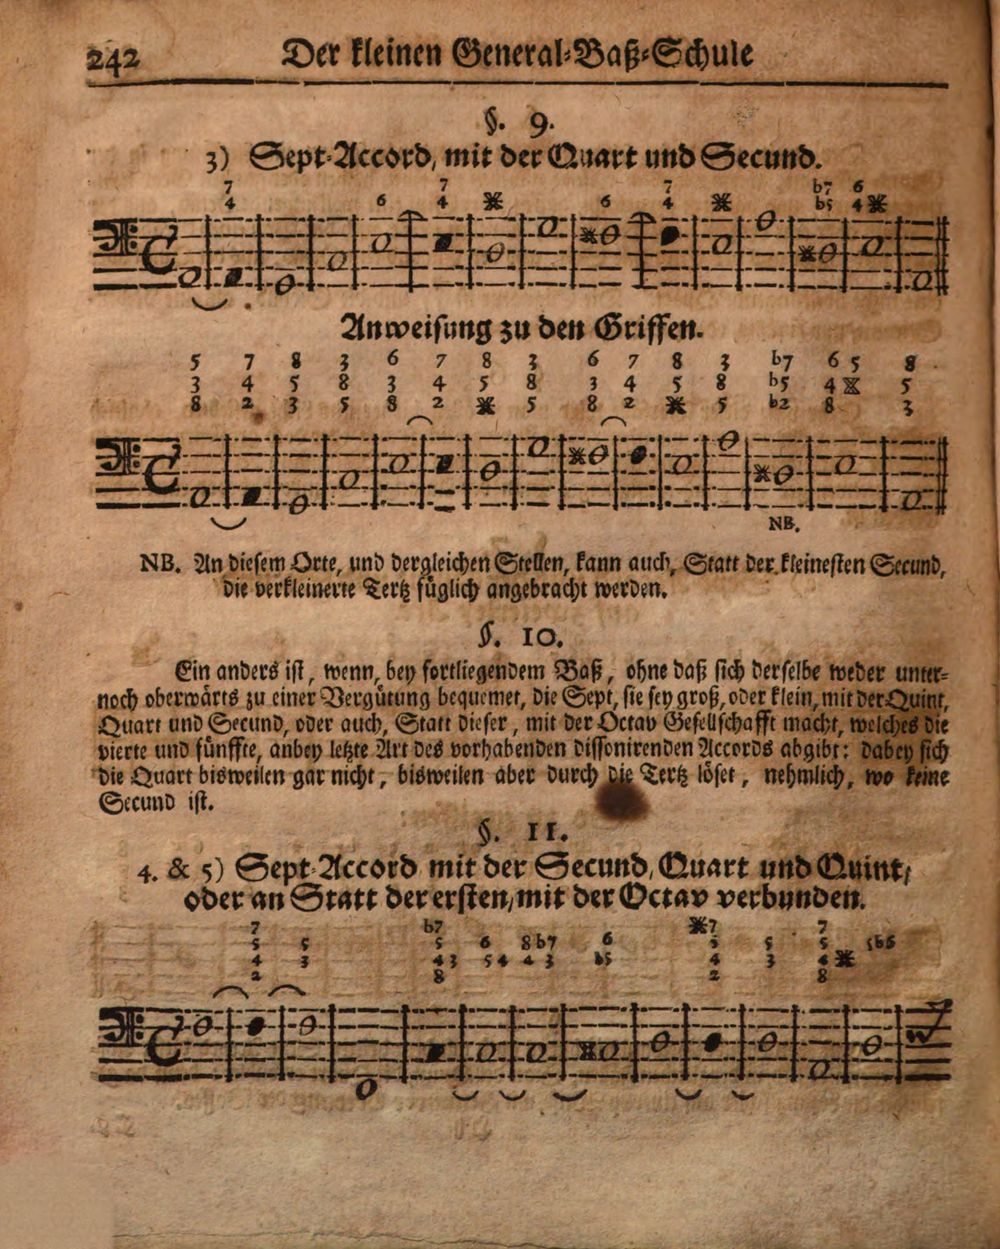 242 Der kleinen General-Baß-Schule
§. 9.
3) Sept-Accord, mit der Quart und Secund.
7 7 7 b7 6
4 6 4 ※ 6 4 ※ b5 4※
Anweisung zu den Griffen.
5 7 8 3 6 7 8 3 6 7 8 3 b7 6 5 8
3 4 5 8 3 4 5 8 3 4 5 8 b5 4 ※ 5
8 2 3 5 8 2 ※ 5 8 2 ※ 5 b2 8 3
NB.
NB. An diesem Orte, und dergleichen Stellen, kann auch, Statt der kleinesten Secund,
die verkleinerte Tertz füglich angebracht werden.
§. 10.
Ein anders ist, wenn, bey fortliegendem Baß, ohne daß sich derselbe weder unter-
noch oberwärts zu einer Vergütung bequemet, die Sept, sie sey groß, oder klein, mit der Quint,
Quart und Secund, oder auch, Statt dieser, mit der Octav Gesellschafft macht, welches die
vierte und fünffte, anbey letzte Art des vorhabenden dissonirenden Accords abgibt: dabey sich
die Quart bisweilen gar nicht, bisweilen aber durch die Tertz löset, nehmlich, wo keine
Secund ist.
§. 11.
4. & 5) Sept-Accord mit der Secund, Quart und Quint,
oder an Statt der ersten, mit der Octav verbunden.
7 b7 ※7 7
5 5 5 6 8 b7 6 5 5 5 5b6
4 3 4 3 5 4 4 3 b5 4 3 4 ※
2 8 2 8